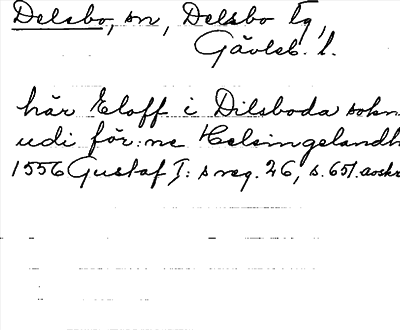 Delsbo, sn, Delsbo tg,
Gävleb. l.
här Eloff i Dilsboda sokn
udi för:ne Helsingelandh
1556 Gustaf I: s reg. 26, s. 651. aoskr